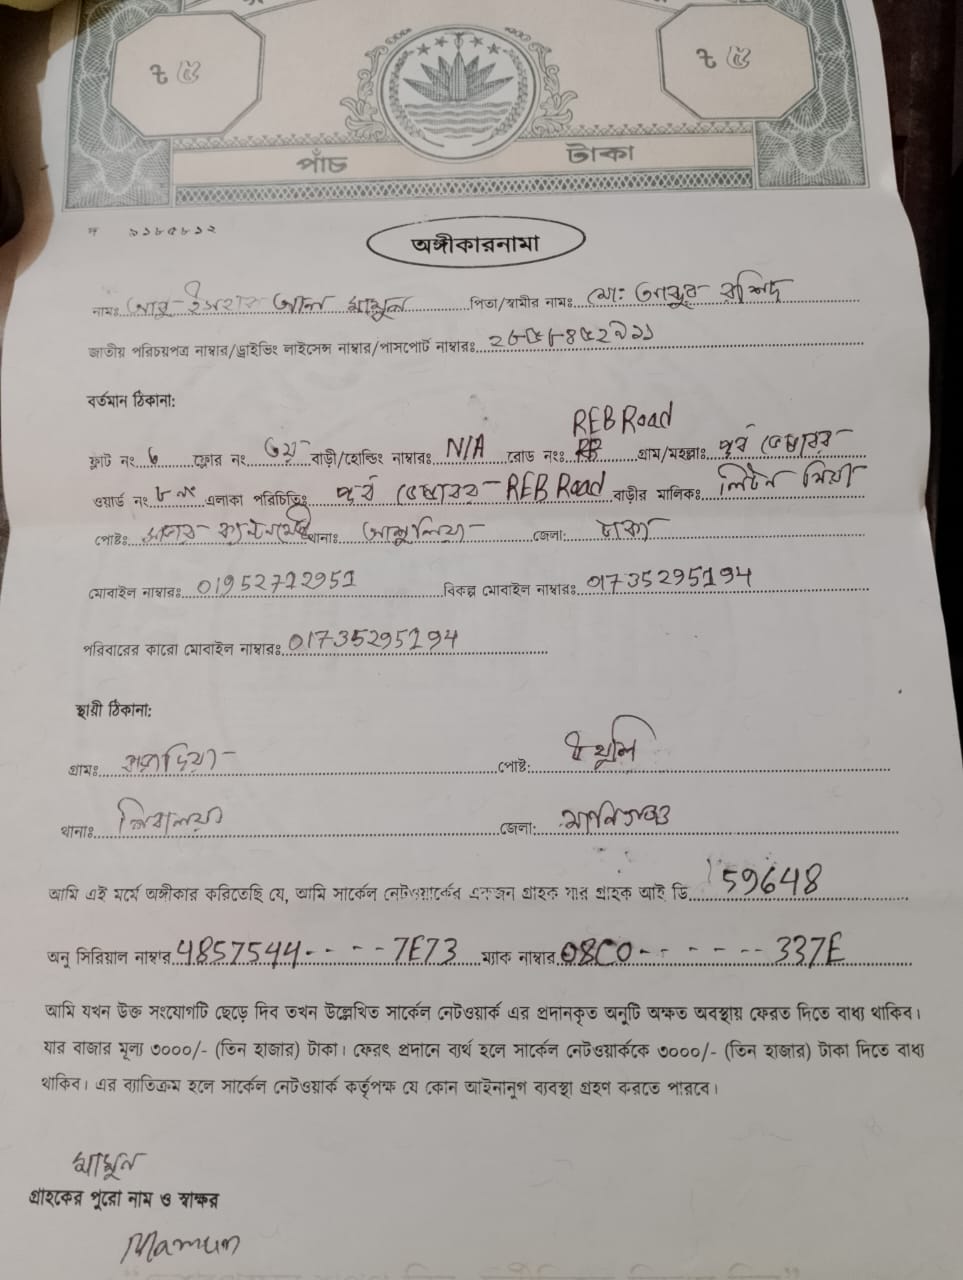 ৳ ৫ ৳ ৫
পাঁচ টাকা
অঙ্গীকারনামা
নামঃ আবু-ইসহাক আল মামুন পিতা/স্বামীর নামঃ মো: আব্দুর রশিদ
জাতীয় পরিচয়পত্র নাম্বার/ড্রাইভিং লাইসেন্স নাম্বার/পাসপোর্ট নাম্বারঃ
বর্তমান ঠিকানা:
REB Road
ফ্লাট নং ৬ ফ্লোর নং ৩য় বাড়ী/হোল্ডিং নাম্বারঃ N/A রোড নংঃ গ্রাম/মহল্লাঃ পূর্ব
ওয়ার্ড নং ৮ নং এলাকা পরিচিতিঃ পূর্ব REB Road বাড়ীর মালিকঃ লিটন মিয়া
পোষ্টঃ থানাঃ আশুলিয়া জেলা: ঢাকা
মোবাইল নাম্বারঃ 01952712951 বিকল্প মোবাইল নাম্বারঃ 01735295194
পরিবারের কারো মোবাইল নাম্বারঃ 01735295194
স্থায়ী ঠিকানা:
গ্রামঃ পোষ্ট:
থানাঃ শিবালয় জেলা: মানিকগঞ্জ
আমি এই মর্মে অঙ্গীকার করিতেছি যে, আমি সার্কেল নেটওয়ার্কের একজন গ্রাহক যার গ্রাহক আই ডি 59648
অনু সিরিয়াল নাম্বার 4857544- - - -7E73 ম্যাক নাম্বার 08C0- - - - - -337E
আমি যখন উক্ত সংযোগটি ছেড়ে দিব তখন উল্লেখিত সার্কেল নেটওয়ার্ক এর প্রদানকৃত অনুটি অক্ষত অবস্থায় ফেরত দিতে বাধ্য থাকিব।
যার বাজার মূল্য ৩০০০/- (তিন হাজার) টাকা। ফেরৎ প্রদানে ব্যর্থ হলে সার্কেল নেটওয়ার্ককে ৩০০০/- (তিন হাজার) টাকা দিতে বাধ্য
থাকিব। এর ব্যতিক্রম হলে সার্কেল নেটওয়ার্ক কর্তৃপক্ষ যে কোন আইনানুগ ব্যবস্থা গ্রহণ করতে পারবে।
মামুন
গ্রাহকের পুরো নাম ও স্বাক্ষর
Mamun